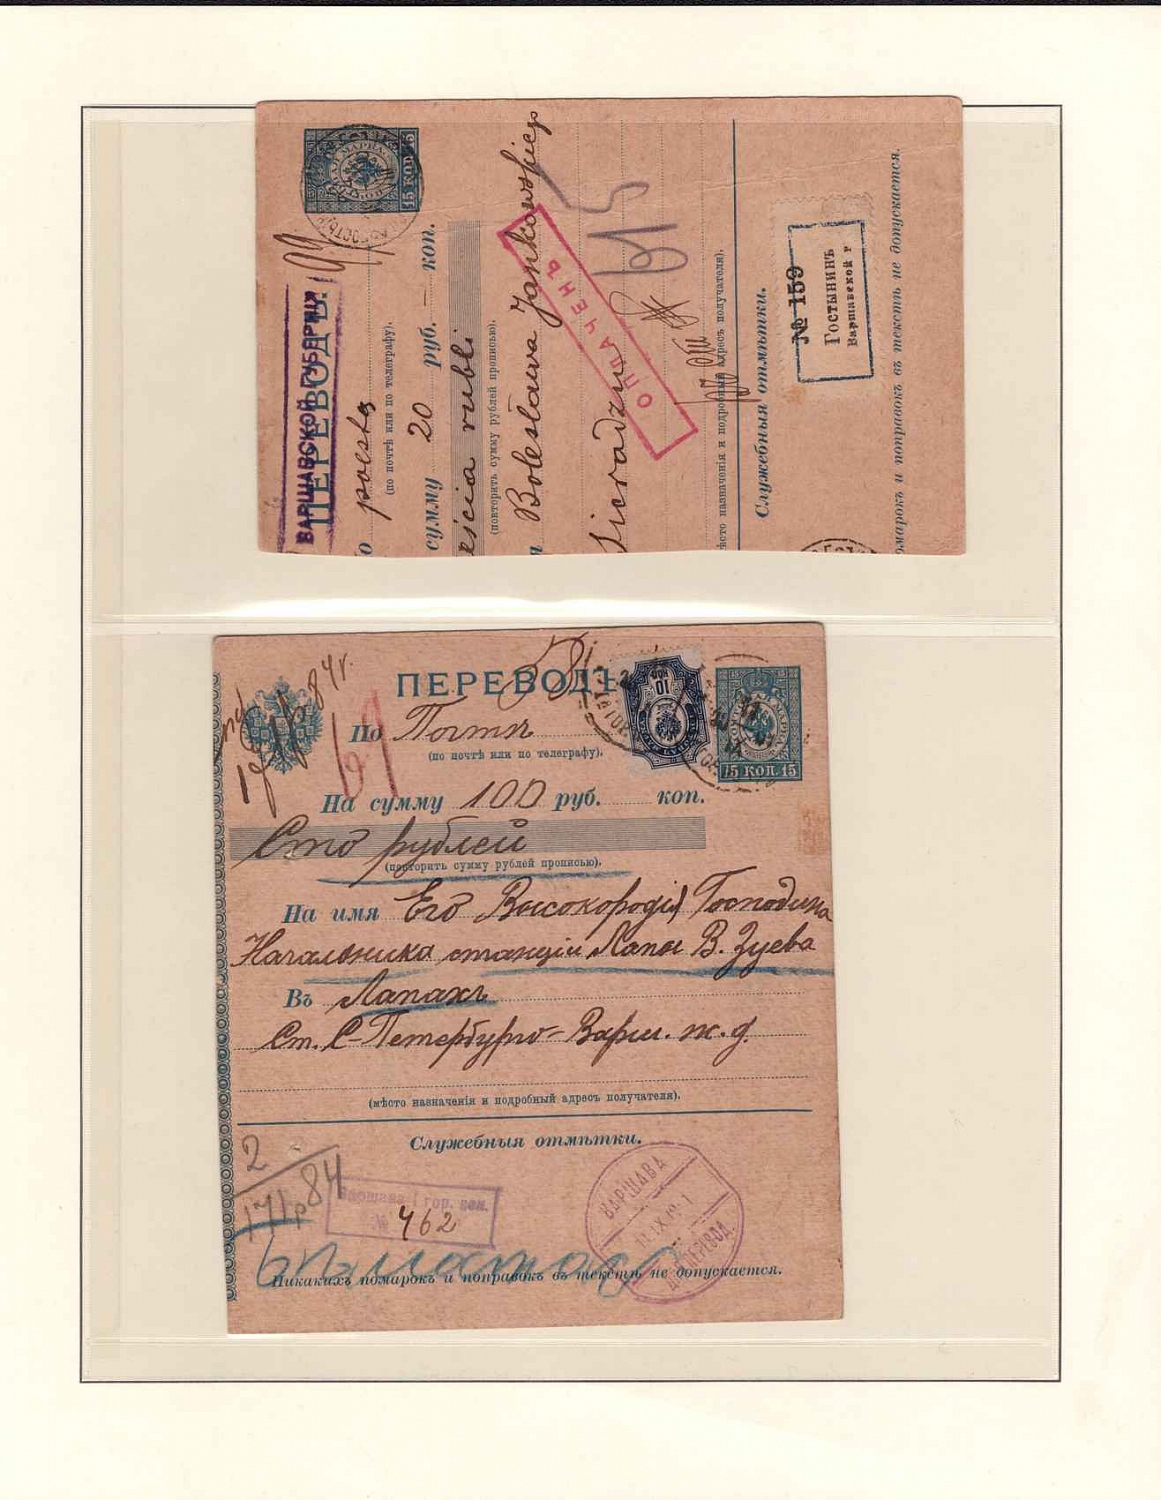 ВАРШАВСКОЙ ГУБЕРНІИ
ПЕРЕВОДЪ.
15 КОП. 15
о poczta
(по почтѣ или по телеграфу).
сумму 20 руб. — коп.
eścia rubli
(повторить сумму рублей прописью).
Bolesława Jankowskiego
Sieradzu
ОПЛАЧЕНЪ
сто назначенія и подробный адресъ получателя).
Служебныя отмѣтки.
№ 159
Гостынинъ
Варшавской г
помарокъ и поправокъ въ текстѣ не допускается.
ПЕРЕВОДЪ
10
КОП
15 КОП. 15
По Почтѣ
(по почтѣ или по телеграфу).
На сумму 100 руб. коп.
Сто рублей
(повторить сумму рублей прописью).
На имя Его Высокородія Господина
Начальника станціи Лапы В. Зуева
Въ Лапахъ
Ст. С-Петербурго-Варш. ж. д.
(мѣсто назначенія и подробный адресъ получателя).
Служебныя отмѣтки.
2
171р 84
Варшава гор. кон.
№ 462
ВАРШАВА
ПЕРЕВОД.
Никакихъ помарокъ и поправокъ въ текстѣ не допускается.